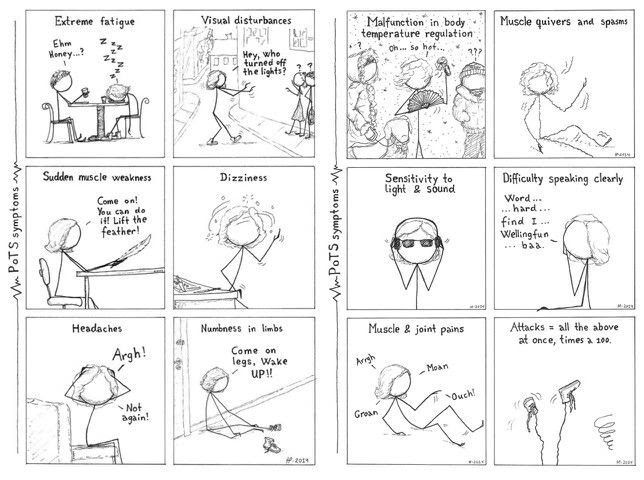 PoTS symptoms
Extreme fatigue
Ehm
Honey...?
Z Z Z Z Z Z Z
Visual disturbances
Hey, who
turned off
the lights?
? ?
Sudden muscle weakness
Come on!
You can do
it! Lift the
feather!
Dizziness
Headaches
Argh!
Not
again!
Numbness in limbs
Come on
legs, Wake
UP!!
H-2014
PoTS symptoms
Malfunction in body
temperature regulation
Oh... so hot...
?
???
Muscle quivers and spasms
H-2014
Sensitivity to
light & sound
H-2014
Difficulty speaking clearly
Word...
...hard...
find I...
Wellingfun
... baa.
H-2014
Muscle & joint pains
Arrgh
Moan
Ouch!
Groan
H-2014
Attacks = all the above
at once, times a 100.
H-2014